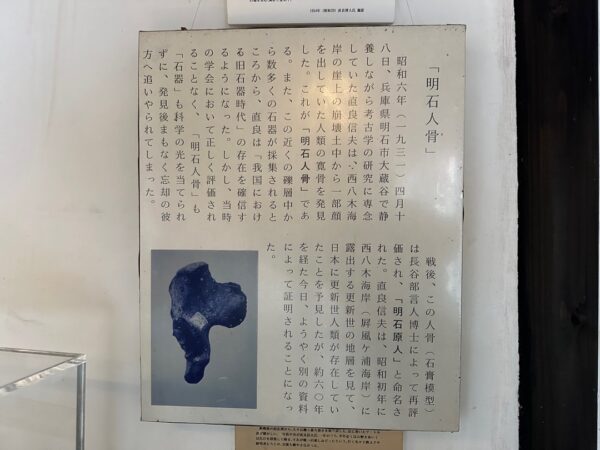 「明石人骨」
昭和六年(一九三一)四月十
八日、兵庫県明石市大蔵谷で静
養しながら考古学の研究に専念
していた直良信夫は、西八木海
岸の崖上の崩壊土中から一部顔
を出していた人類の寛骨を発見
した。これが「明石人骨」であ
る。また、この近くの礫層中か
ら数多くの石器が採集されると
ころから、直良は「我国におけ
る旧石器時代」の存在を確信す
るようになった。しかし、当時
の学会において正しく評価され
ることなく、「明石人骨」も
「石器」も科学の光を当てられ
ずに、発見後まもなく忘却の彼
方へ追いやられてしまった。
戦後、この人骨(石膏模型)
は長谷部言人博士によって再評
価され、「明石原人」と命名さ
れた。直良信夫は、昭和初年に
西八木海岸(屏風ケ浦海岸)に
露出する更新世の地層を見て、
日本に更新世人類が存在してい
たことを予見したが、約六〇年
を経た今日、ようやく別の資料
によって証明されることになっ
た。